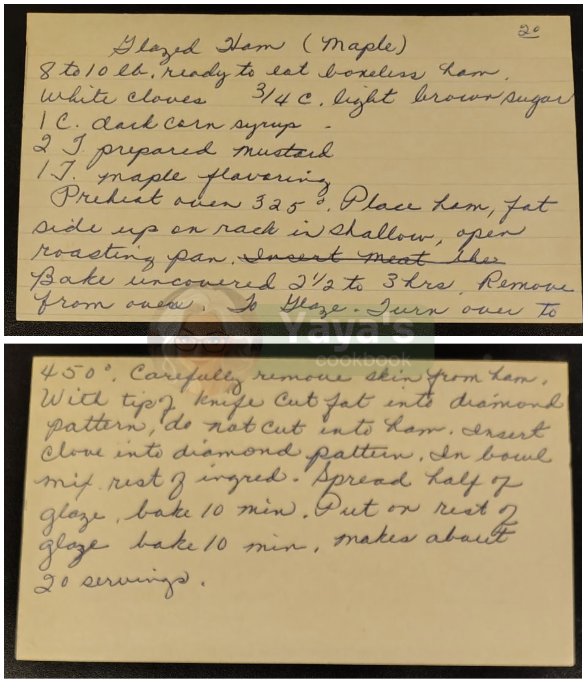 20
Glazed Ham (Maple)
8 to 10 lb. ready to eat boneless ham.
White cloves 3/4 c. light brown sugar
1 C. dark corn syrup.
2 T. prepared mustard
1 T. maple flavoring
Preheat oven 325°. Place ham, fat
side up on rack in shallow, open
roasting pan. Insert meat the
Bake uncovered 2 1/2 to 3 hrs. Remove
from oven. To Glaze. Turn over to
Yaya's
cookbook
450°. Carefully remove skin from ham.
With tip of knife cut fat into diamond
pattern, do not cut into ham. Insert
clove into diamond pattern. In bowl
mix rest of ingred. Spread half of
glaze, bake 10 min. Put on rest of
glaze bake 10 min. makes about
20 servings.